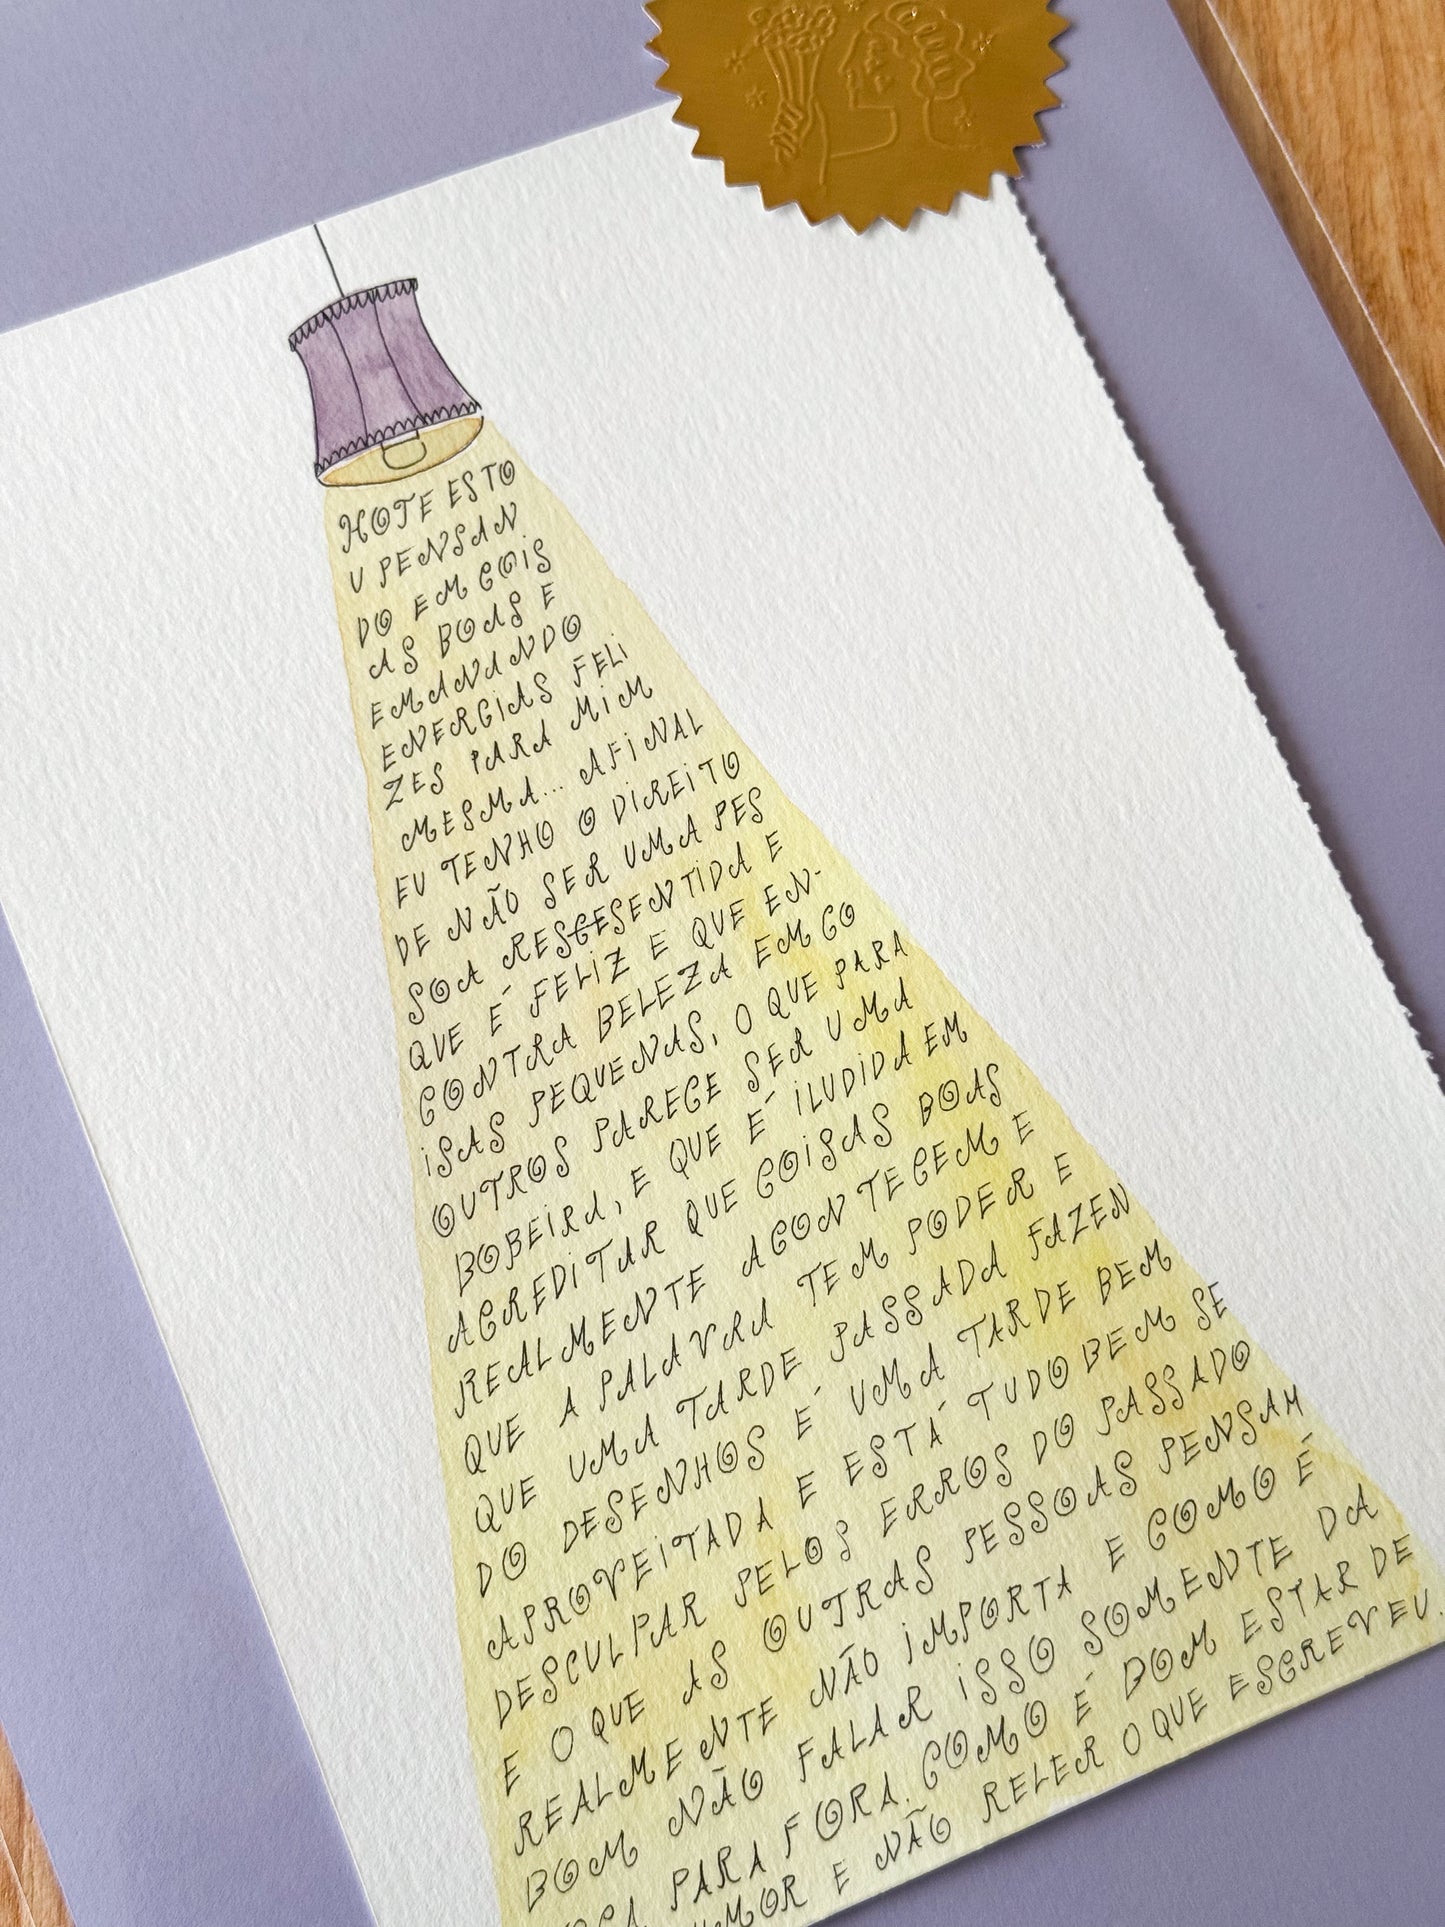 HOJE ESTO
U PENSAN
DO EM COIS
AS BOAS E
EMANANDO
ENERGIAS FELI
ZES PARA MIM
MESMA... AFINAL
EU TENHO O DIREITO
DE NÃO SER UMA PES
SOA RESCESENTIDA E
QUE É FELIZ E QUE EN-
CONTRA BELEZA EM CO
ISAS PEQUENAS, O QUE PARA
OUTROS PARECE SER UMA
BOBEIRA, E QUE É ILUDIDA EM
ACREDITAR QUE COISAS BOAS
REALMENTE ACONTECEM E
QUE A PALAVRA TEM PODER E
QUE UMA TARDE PASSADA FAZEN
DO DESENHOS É UMA TARDE BEM
APROVEITADA E ESTÁ TUDO BEM SE
DESCULPAR PELOS ERROS DO PASSADO
E O QUE AS OUTRAS PESSOAS PENSAM
REALMENTE NÃO IMPORTA E COMO É
BOM NÃO FALAR ISSO SOMENTE DA
PARA FORA. COMO É BOM ESTAR DE
E NÃO RELER O QUE ESCREVEU.